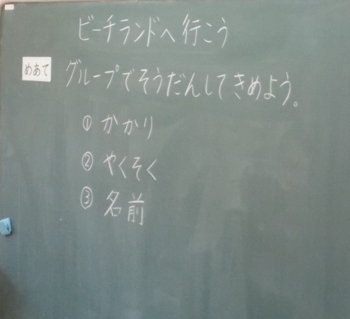 ビーチランドへ行こう
めあて グループでそうだんしてきめよう。
① かかり
② やくそく
③ 名前